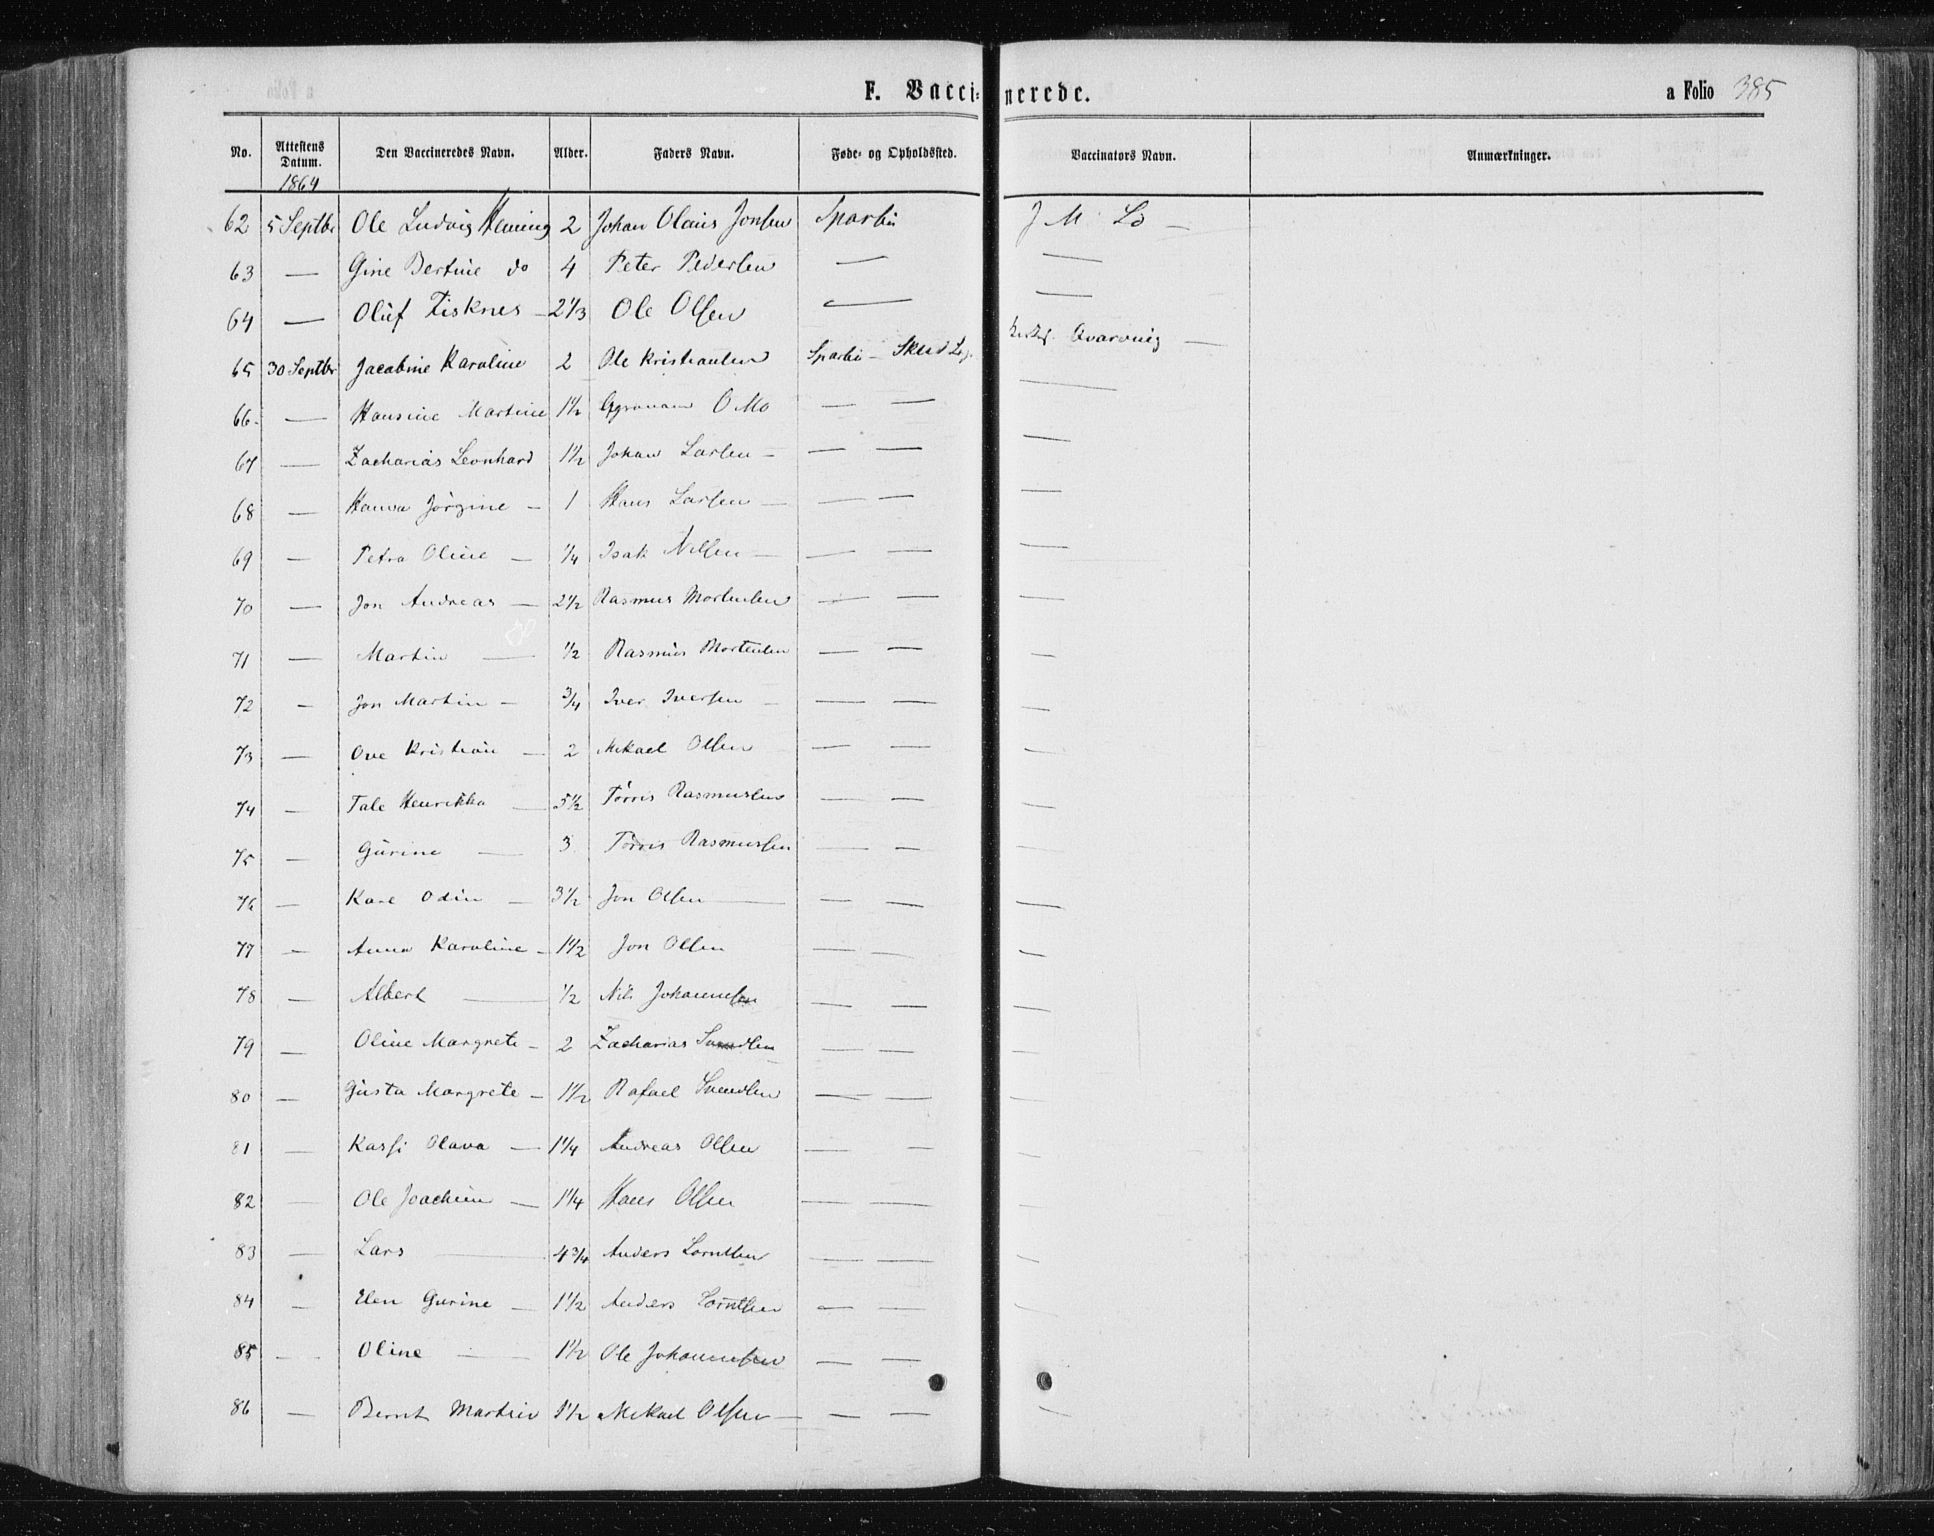 F. Vaccinerede.
a Folio 385
No. Attestens Datum. Den Vaccineredes Navn. Alder. Faders Navn. Føde- og Opholdssted. Vaccinators Navn. Anmærkninger.
1864
62 5 Septbr Ole Ludvig Hening 2 Johan Olaus Jonsen Sparbu J M Lo —
63 — Gine Bertine do 4 Peter Pedersen — —
64 — Oluf Fisknes — 2 1/3 Ole Olsen — —
65 30 Septbr Jacobine Karoline 2 Ole Kristiansen Sparbu — Skei d Lg. Qvarving —
66. — Hansine Martine 1 1/2 O Mo — — —
67 — Zacharias Leonhard 1 1/2 Johan Larsen — — — —
68 — Hanna Jörgine — 1 Hans Larsen — — — —
69 — Petra Oline — 1/4 Isak Nilsen — — — —
70 — Jon Andreas — 2 1/2 Rasmus Mortensen — — —
71 — Martin — 1/2 Rasmus Mortensen — — —
72 — Jon Martin — 3/4 Iver Iversen — — — —
73 — Ove Kristian — 2 Mikael Olsen — — —
74 — Tale Henrikka — 5 1/2 Törris Rasmussen — — —
75 — Gurine — 3 Törris Rasmussen — — —
76 — Karl Odin — 3 1/2 Jon Olsen — — — —
77 — Anna Karoline — 1 1/2 Jon Olsen — — —
78 — Albert — 1/2 Nils Johannesen — — —
79 — Oline Margrete — 2 Zacharias Svendsen — — —
80 — Gusta Margrete — 1 1/2 Rafael Svendsen — — —
81 — Kassi Olava — 1 1/4 Andreas Olsen — — —
82 — Ole Joachim — 1 1/4 Hans Olsen — — —
83 — Lars — 4 3/4 Anders Lorntsen — — —
84 — Elen Gurine — 1 1/2 Anders Lorntsen — — —
85 — Oline — 1 1/2 Ole Johannesen — —
86 — Bernt Martin 1 1/2 Mikael Olsen — — — —